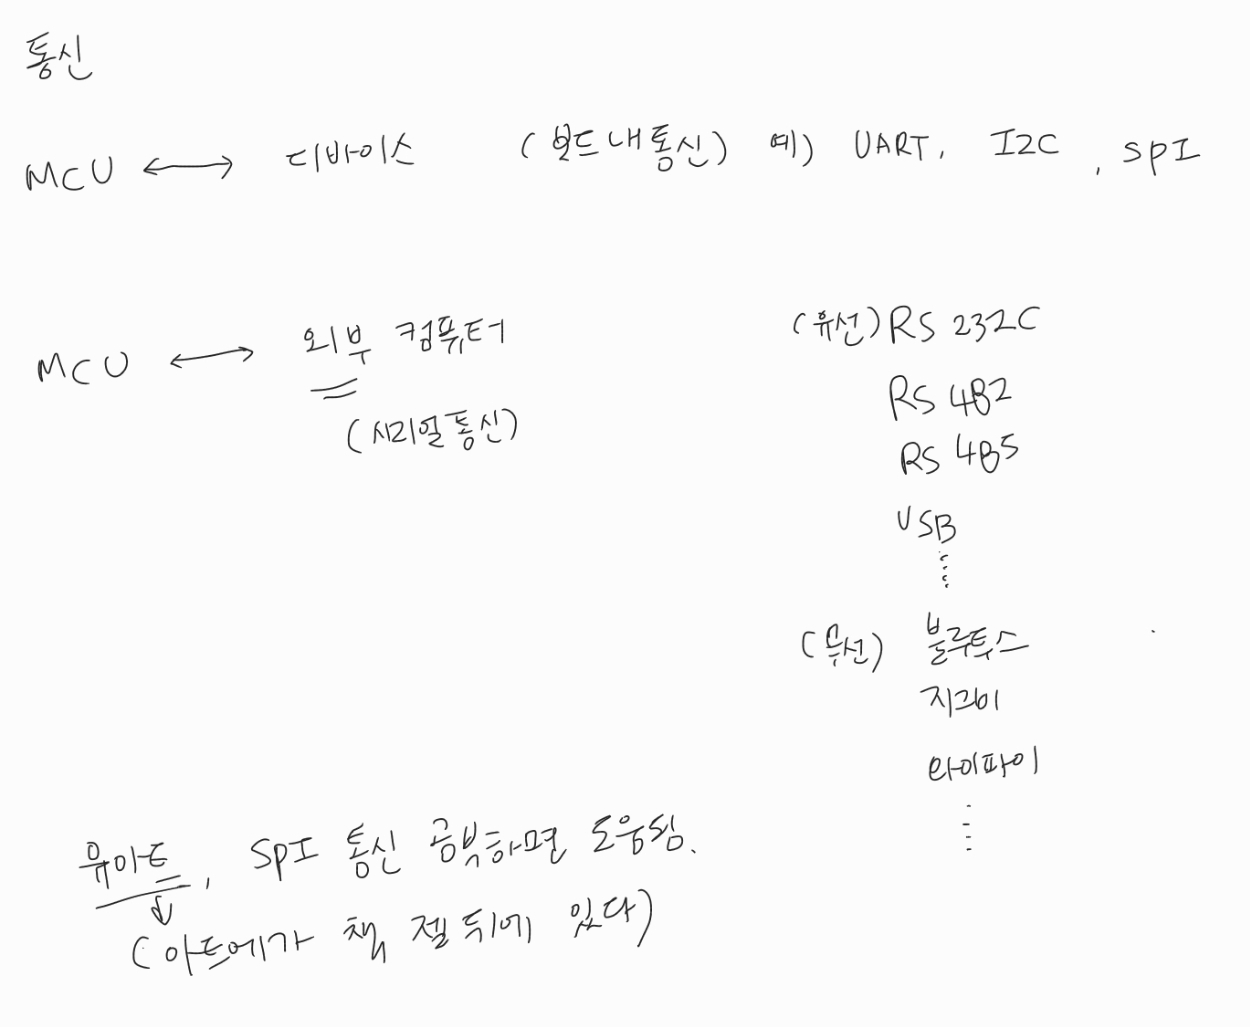 통신
MCU ↔ 디바이스 (보드 내 통신) 예) UART, I2C, SPI
MCU ↔ 외부 컴퓨터 (유선) RS 232C
(시리얼 통신)
RS 482
RS 485
USB
(무선) 블루투스
지그비
와이파이
유아트, SPI 통신 공부하면 도움됨.
(아트메가 책 젤 뒤에 있다)